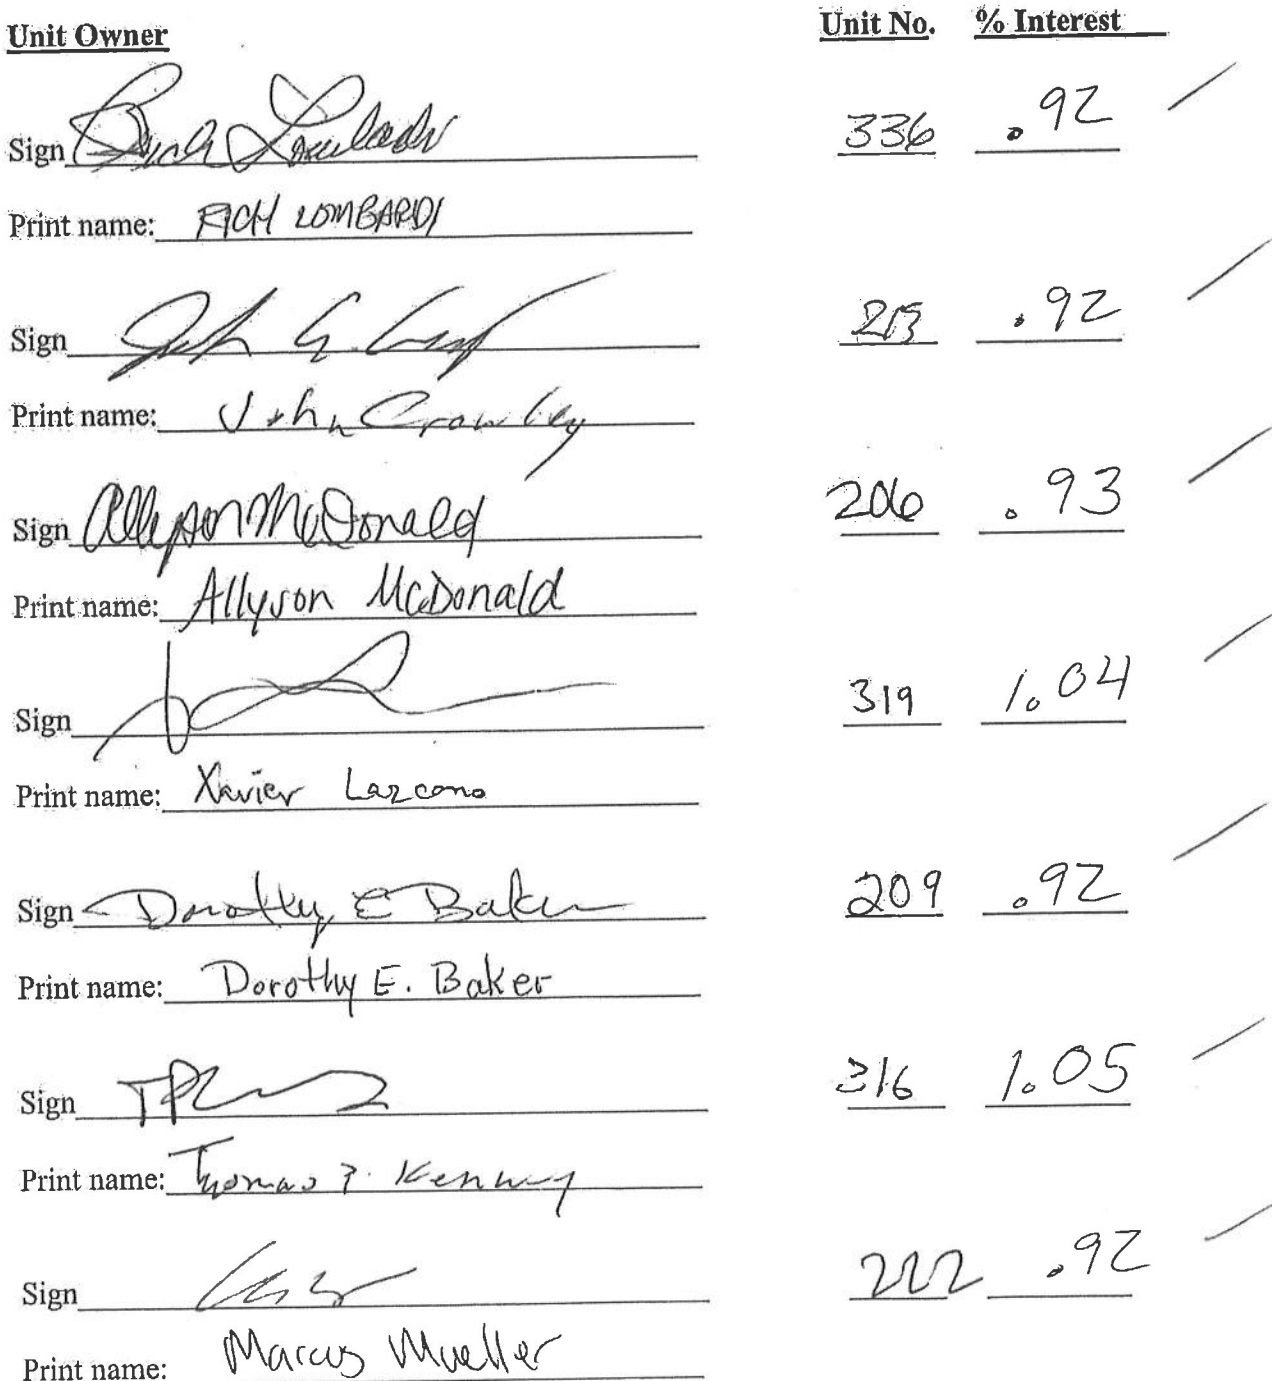 Unit Owner Unit No. % Interest
Sign Rich Lombardi 336 .92
Print name: RICH LOMBARDI
Sign 213 .92
Print name: John Crowley
Sign Allyson McDonald 206 .93
Print name: Allyson McDonald
Sign 319 1.04
Print name: Xavier Lazcano
Sign Dorothy E Baker 209 .92
Print name: Dorothy E. Baker
Sign 316 1.05
Print name: Thomas P. Kenny
Sign 222 .92
Print name: Marcus Mueller